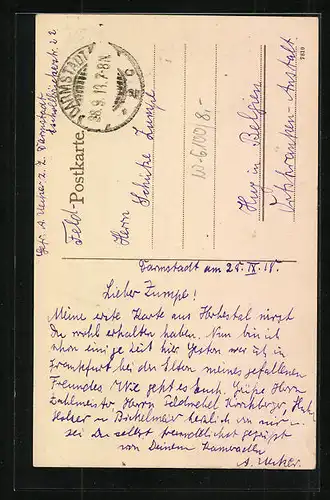 Gefr. A. Weiner z. Z. Darmstadt
Feld-Postkarte.
DARMSTADT
28.9.18. 7-8N.
Herrn Schütze Zumpe
W-6/1001 8.-
Huy in Belgien
Ortskranken-Anstalt
7810
Darmstadt am 28. IX. 18.
Lieber Zumpe!
Meine erste Karte aus Hohestal wirst
Du wohl erhalten haben. Nun bin ich
schon einige Zeit hier. Gestern war ich in
Frankfurt bei den Eltern meines gefallenen
Freundes. Wie geht es Euch. Grüße Herrn
Zahlmeister Herrn Feldwebel Kirchberger,
Holzer u. Bickelmaier herzlich von mir u.
sei Du selbst freundlichst gegrüßt
von Deinem Kameraden
A.